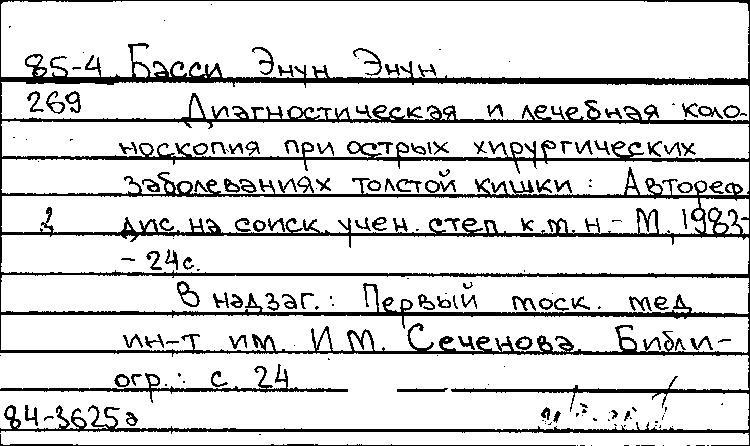 85-4 Бэсси, Энун Энун.
269 Диагностическая и лечебная коло-
носкопия при острых хирургических
заболеваниях толстой кишки: Автореф.
2 дис. на соиск. учен. степ. к.т.н.- М., 1983
- 24с.
В надзаг.: Первый моск. мед
ин-т им. И.М. Сеченова. Библи-
огр.: с. 24
84-3625а